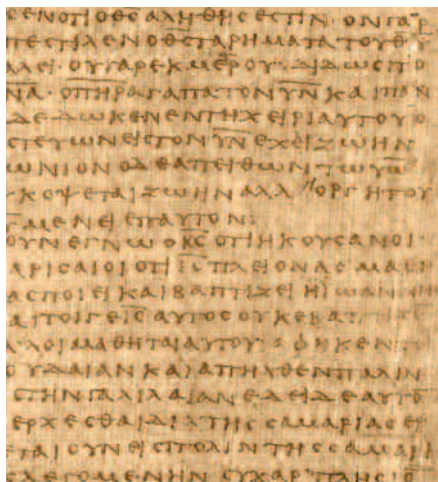 CΕΝΟΤΙΟΘ̅C̅ΑΛΗΘΗCΕCΤΙΝ·ΟΝΓΑΡ
ΠΕCΤΙΛΕΝΟΘ̅C̅ΤΑΡΗΜΑΤΑΤΟΥΘ̅Υ̅
ΑΛΕΙ·ΟΥΓΑΡΕΚΜΕΡΟΥ·ΔΙΔΩCΙΤΟ
Ν̅Α̅·ΟΠ̅Η̅Ρ̅ΑΓΑΠΑΤΟΝΥ̅Ν̅ΚΑΙΠΑΝ
ΔΕΔΩΚΕΝΕΝΤΗΧΕΙΡΙΑΥΤΟΥΟ
CΤΕΥΩΝΕΙCΤΟΝΥ̅Ν̅ΕΧΕΙΖΩΗΝ
ΩΝΙΟΝΟΔΕΑΠΕΙΘΩΝΤΩΥ̅Ω̅
ΚΟΨΕΤΑΙΖΩΗΝΑΛΛΗΟΡΓΗΤΟΥ
ΜΕΝΕΙΕΠΑΥΤΟΝ:
ΟΥΝΕΓΝΩΟΚ̅C̅ΟΤΙΗΚΟΥCΑΝΟΙ
ΑΡΙCΑΙΟΙΟΤΙΙ̅C̅ΠΛΕΙΟΝΑCΜΑΘΗ
ΑCΠΟΙΕΙΚΑΙΒΑΠΤΙΖΕΙΗΙΩΑΝΝΗ
ΑΙΤΟΙΓΕΙ̅C̅ΑΥΤΟCΟΥΚΕΒΑ
ΛΛΟΙΜΑΘΗΤΑΙΑΥΤΟΥ·ΑΦΗΚΕΝΤ
ΟΥΔΑΙΑΝΚΑΙΑΠΗΛΘΕΝΠΑΛΙΝ
CΤΗΝΓΑΛΙΛΑΙΑΝΕΔΕΙΔΕΑΥΤΟ
ΕΡΧΕCΘΑΙΔΙΑΤΗCCΑΜΑΡΙΑCΕΡ
ΕΤΑΙΟΥΝΕΙCΠΟΛΙΝΤΗCCΑΜΑΡΙ
ΛΕΓΟΜΕΝΗΝCΥΧΑΡΠΛΗCΙΟ